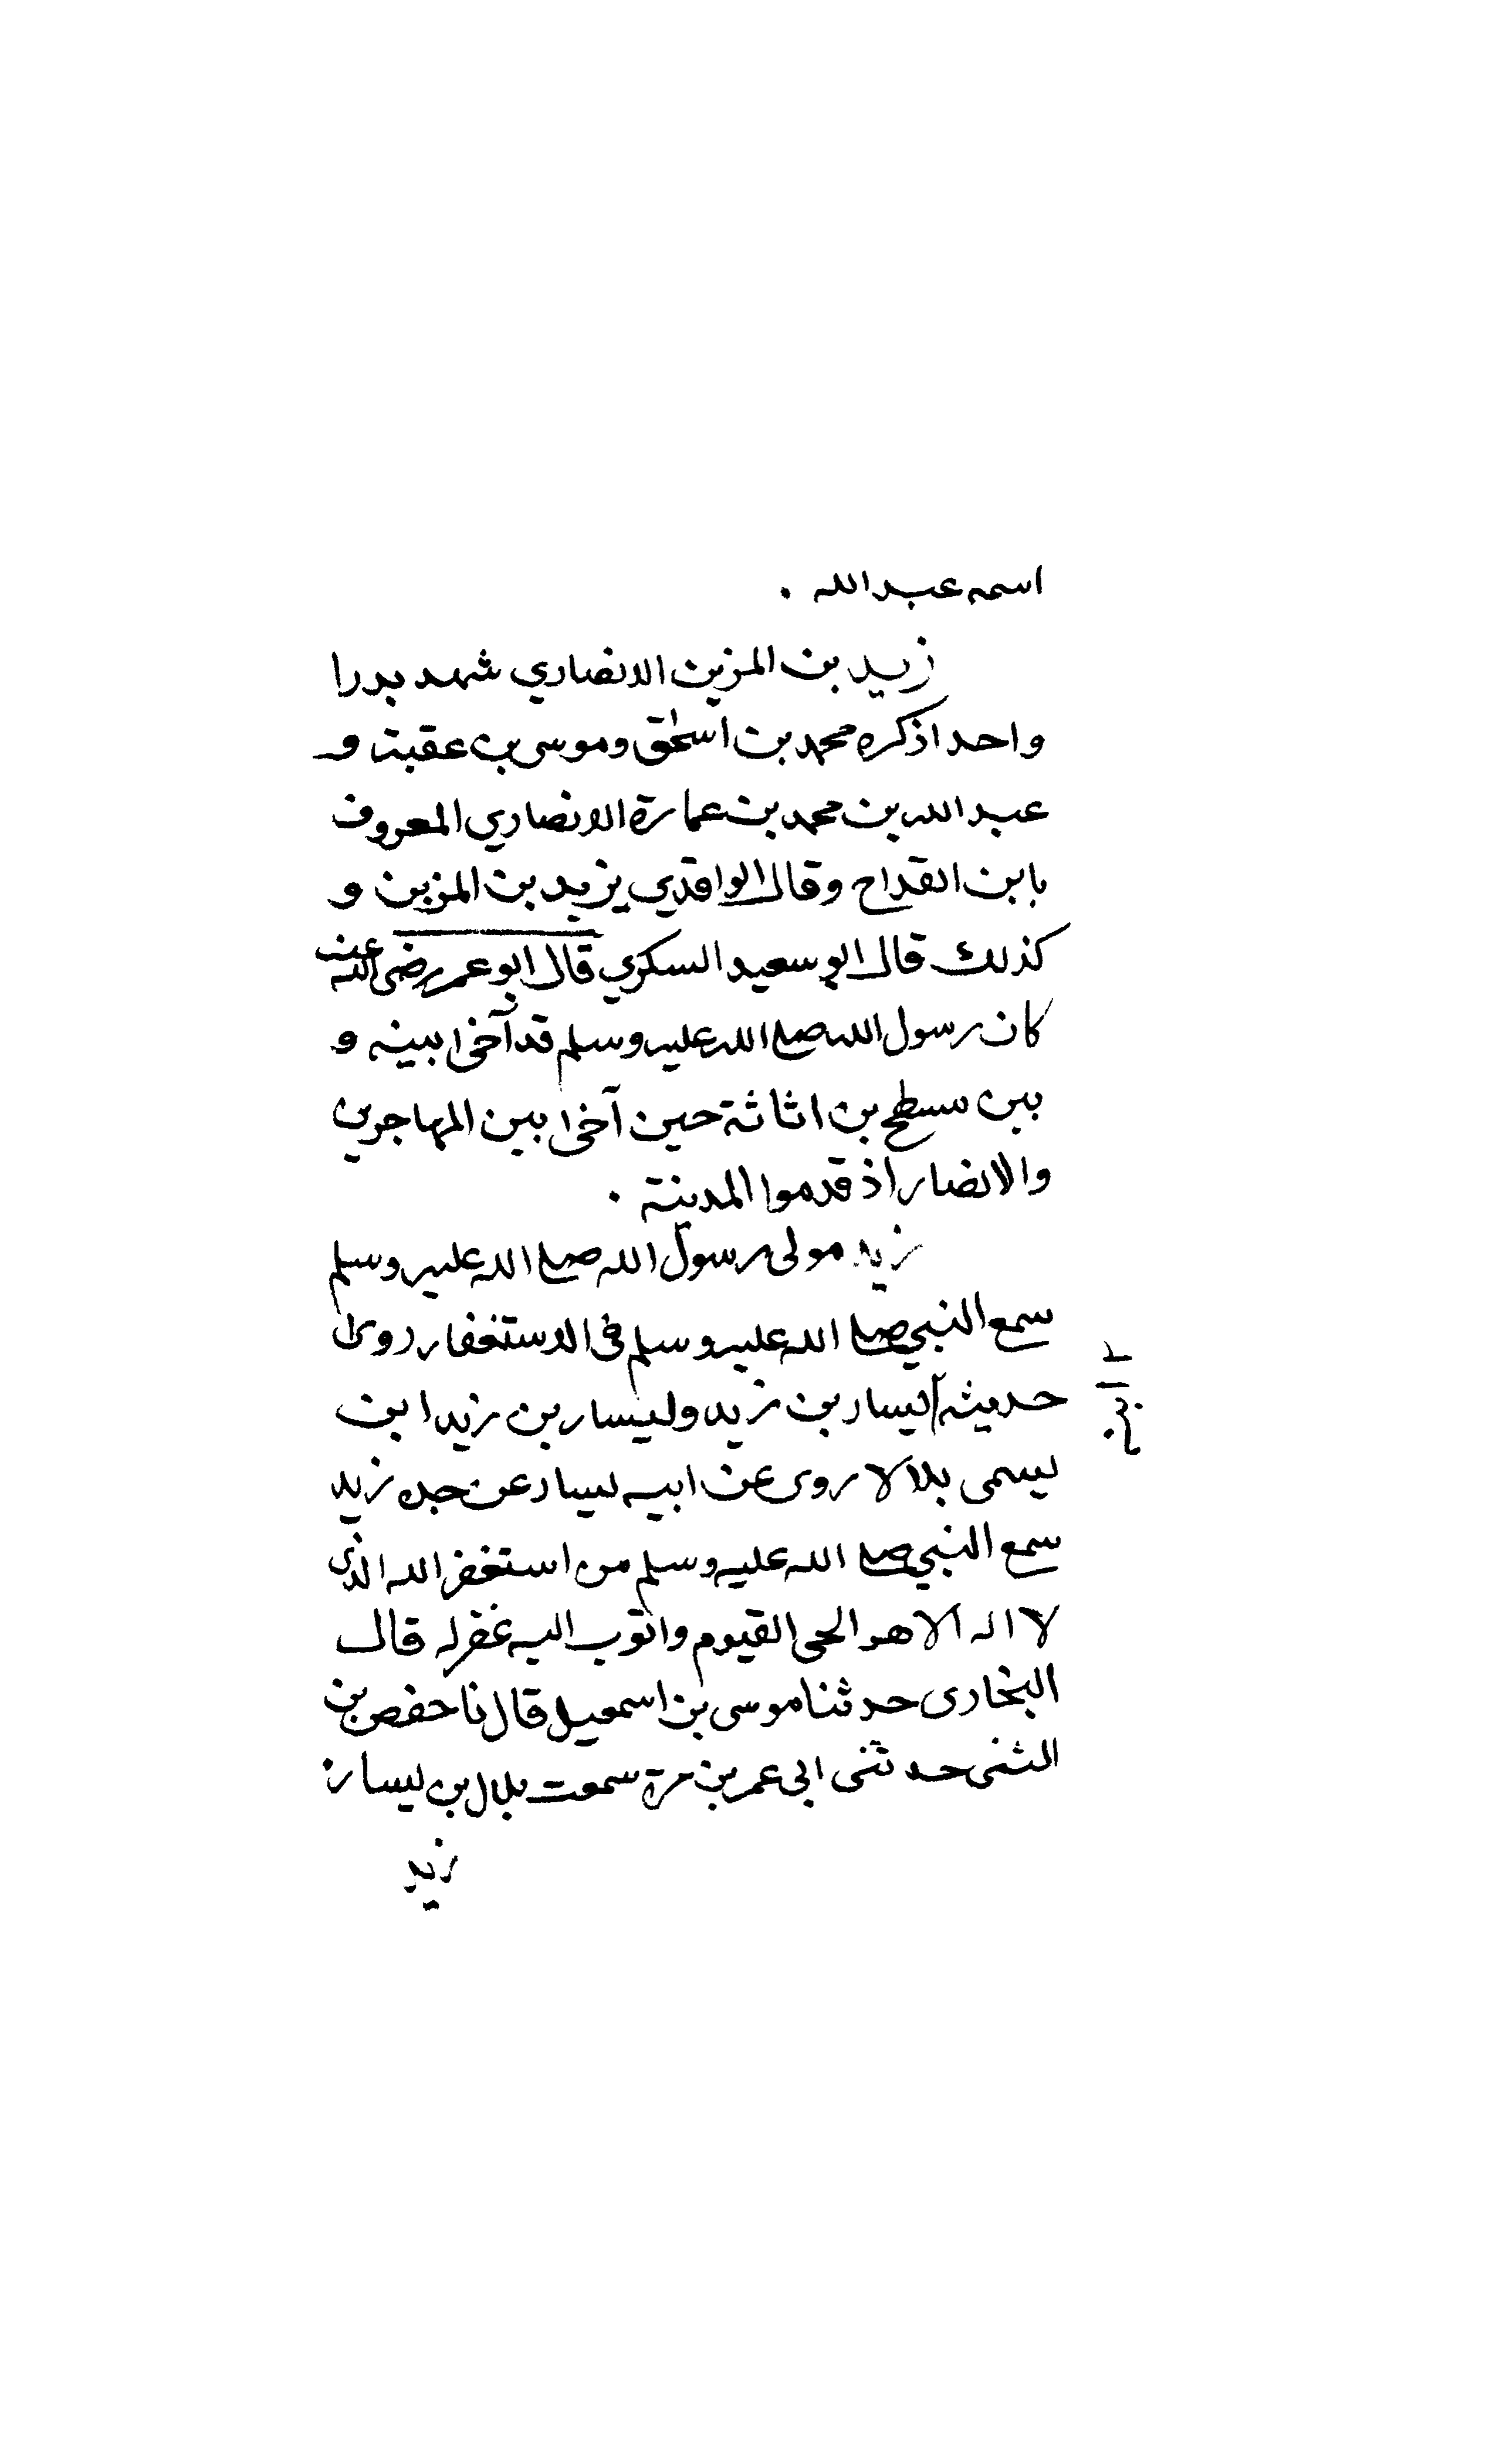 اسمه عبد الله .
زيد بن المزين الانصاري شهد بدرا
واحدا ذكره محمد بن اسحٰق وموسى بن عقبة و
عبد الله بن محمد بن عمارة الانصاري المعروف
بابن القداح وقال الواقدي يزيد بن المزين و
كذلك قال ابو سعيد السكري قال ابو عمر رضى الله عنه
كان رسول الله صلى الله عليه وسلم قد آخى بينه و
بين مسطح بن اثاثة حين آخى بين المهاجرين
والانصار اذ قدموا المدينة .
زيد مولى رسول الله صلى الله عليه وسلم
سمع النبي صلى الله عليه وسلم في الاستغفار روى
حديثه يسار بن زيد وليسار بن زيد ابن
يسمى بلالا روى عن ابيه يسار عن جده زيد
سمع النبي صلى الله عليه وسلم من استغفر الله الذى
لا اله الا هو الحى القيوم واتوب اليه غفر له قال
البخارى حدثنا موسى بن اسمعيل قال نا حفص بن
الثنى حدثنى ابى عمر بن مرة سمعت بلال بن يسار
زيد